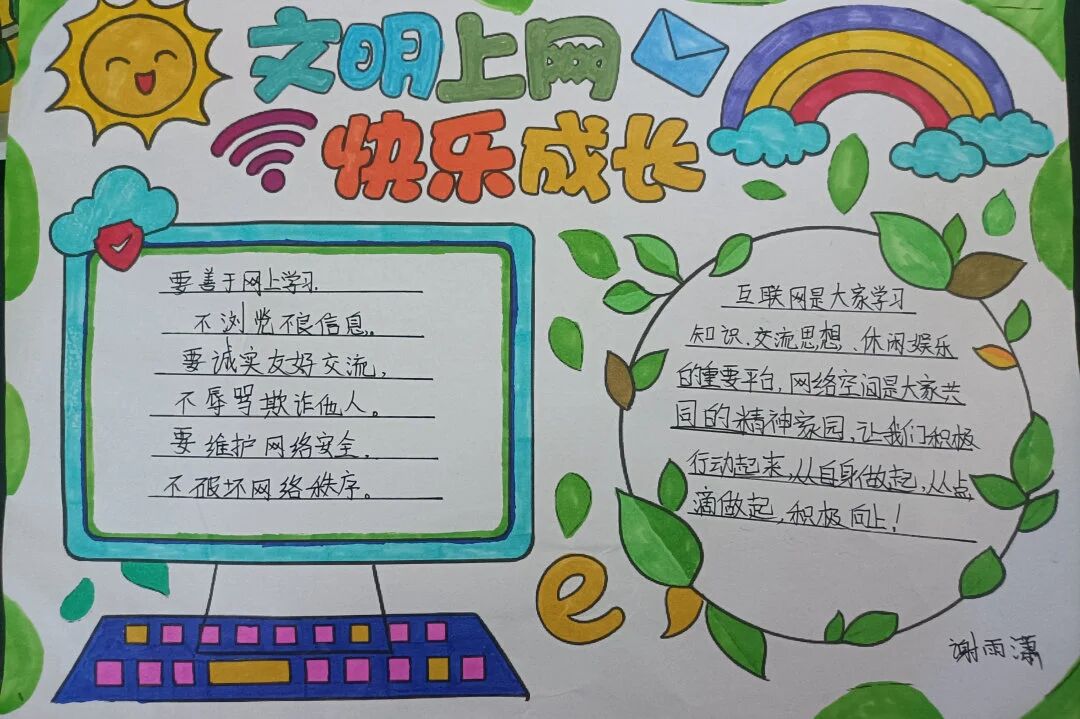 文明上网
快乐成长
要善于网上学习.
不浏览不良信息。
要诚实友好交流,
不辱骂欺诈他人。
要维护网络安全.
不破坏网络秩序。
互联网是大家学习
知识、交流思想、休闲娱乐
的重要平台,网络空间是大家共
同的精神家园,让我们积极
行动起来,从自身做起,从点
滴做起,积极向上!
e
谢雨潇